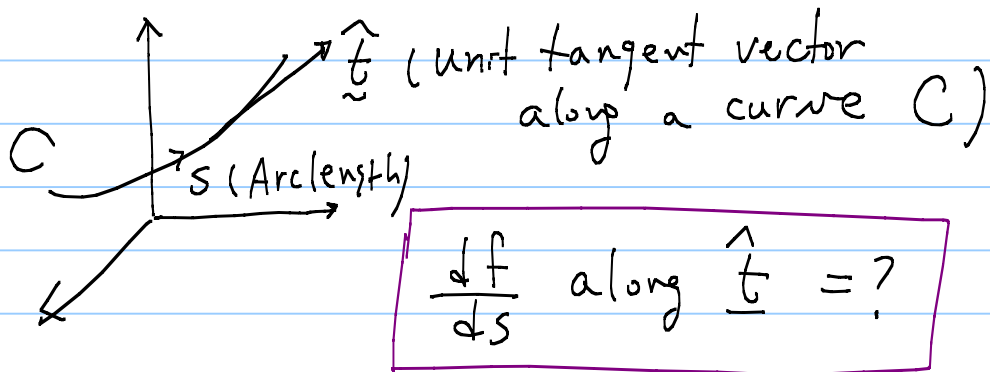 t̂ (unit tangent vector
along a curve C)
C
s (Arclength)
df/ds along t̂ = ?